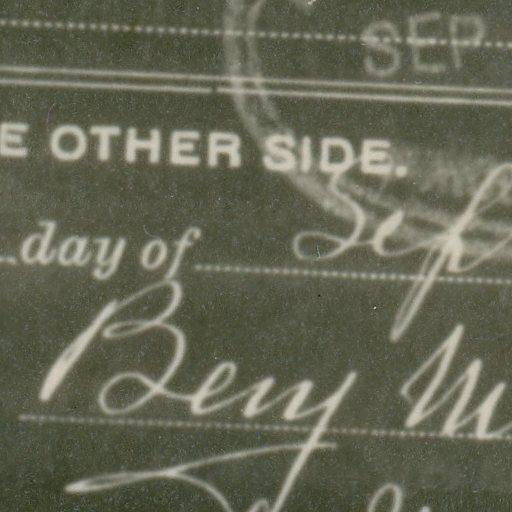 SEP
E OTHER SIDE.
day of Sep
Benj M